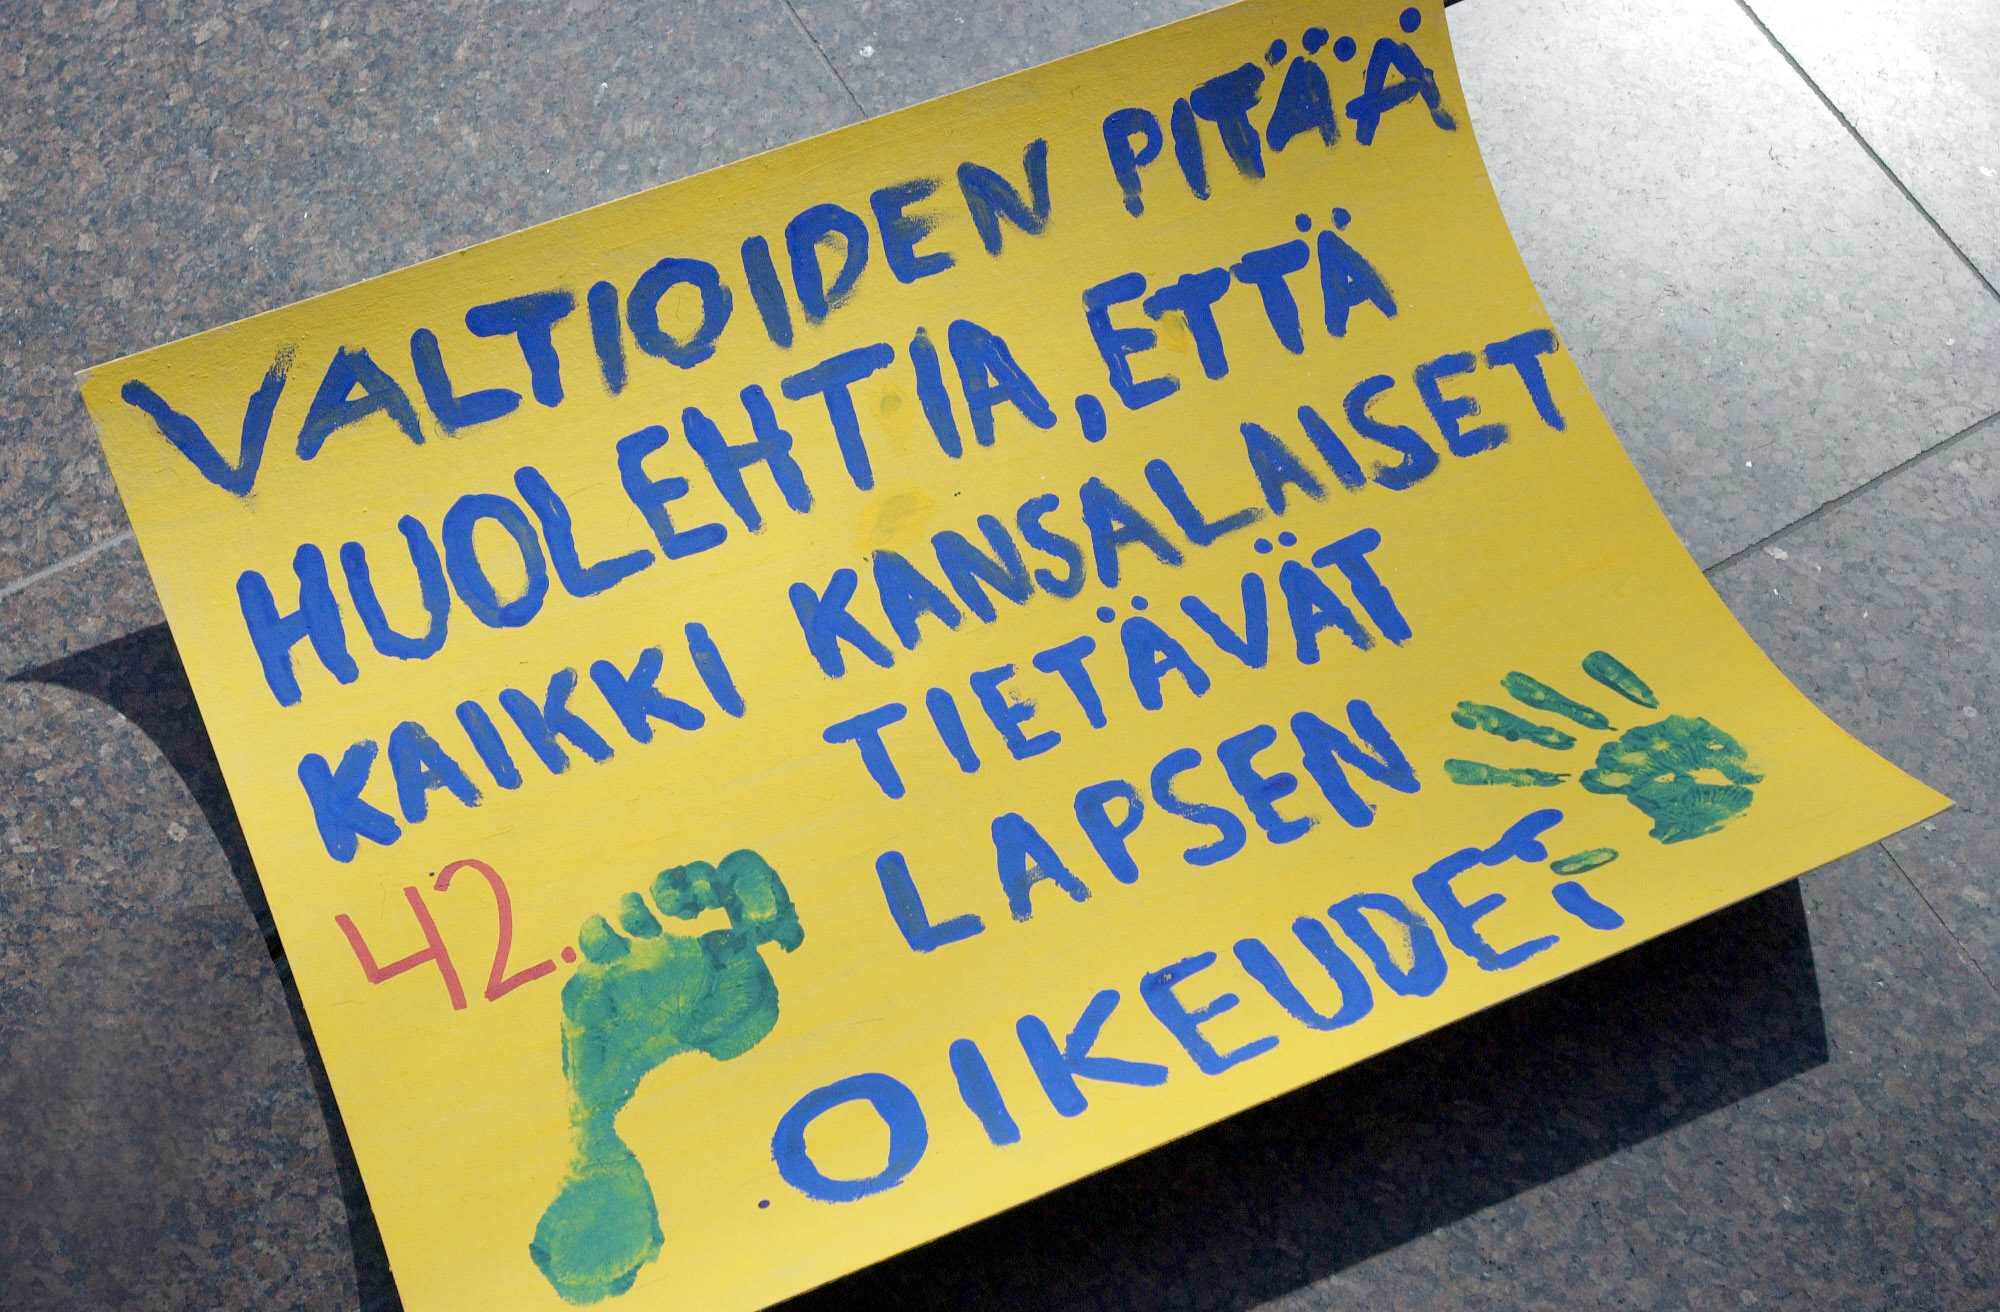 VALTIOIDEN PITÄÄ
HUOLEHTIA, ETTÄ
KAIKKI KANSALAISET
TIETÄVÄT
42. LAPSEN
OIKEUDET